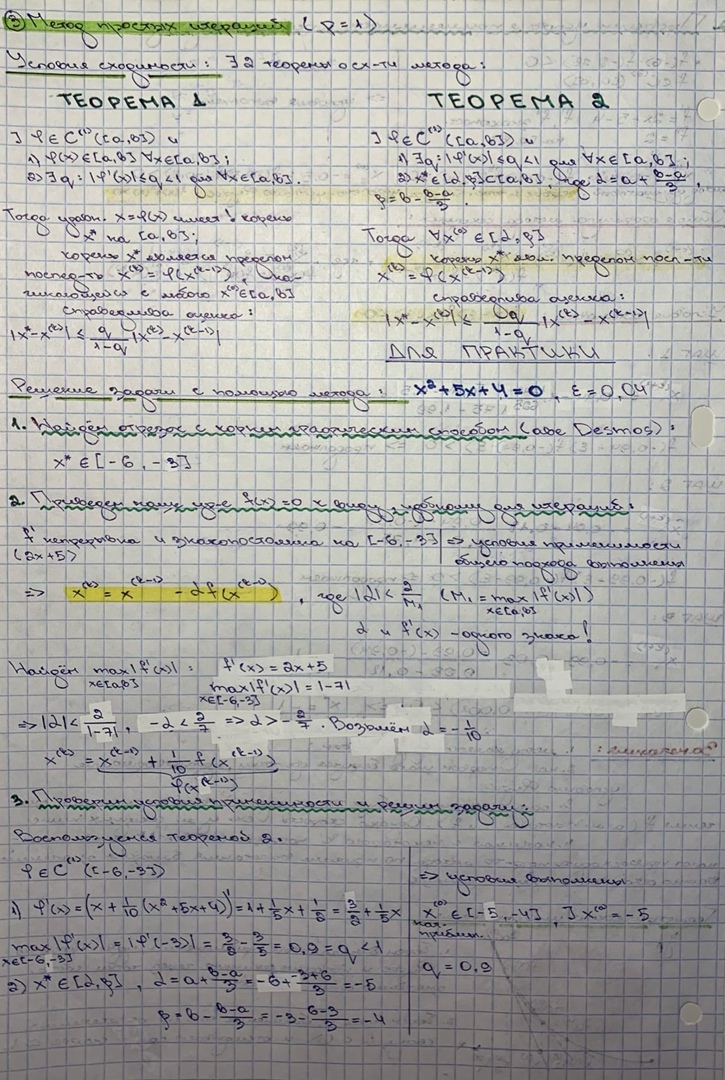 ③ Метод простых итераций (p=1)
Условия сходимости: ∃ 2 теоремы о сх-ти метода:
ТЕОРЕМА 1
] φ∈C⁽¹⁾([a,b]) и
1) φ(x)∈[a,b] ∀x∈[a,b];
2) ∃q: |φ'(x)|≤q<1 для ∀x∈[a,b].
Тогда уравн. x=φ(x) имеет ! корень
x* на [a,b];
корень x* является пределом
послед-ти x⁽ᵏ⁾=φ(x⁽ᵏ⁻¹⁾), на-
чинающейся с любого x⁽⁰⁾∈[a,b]
справедлива оценка:
|x*-x⁽ᵏ⁾| ≤ q/(1-q) |x⁽ᵏ⁾-x⁽ᵏ⁻¹⁾|
ТЕОРЕМА 2
] φ∈C⁽¹⁾([a,b]) и
1) ∃q: |φ'(x)|≤q<1 для ∀x∈[a,b];
2) x*∈[α,β]⊂[a,b], где α=a+(b-a)/3,
β=b-(b-a)/3.
Тогда ∀x⁽⁰⁾∈[α,β]
корень x* явл. пределом посл-ти
x⁽ᵏ⁾=φ(x⁽ᵏ⁻¹⁾)
справедлива оценка:
|x*-x⁽ᵏ⁾| ≤ q/(1-q) |x⁽ᵏ⁾-x⁽ᵏ⁻¹⁾|
ДЛЯ ПРАКТИКИ
Решение задачи с помощью метода: x²+5x+4=0, ε=0,04
1. Найдём отрезок с корнем графическим способом (abe Desmos):
x*∈[-6,-3]
2. Приведем нашу ур-е f(x)=0 к виду, удобному для итераций:
f' непрерывна и знакопостоянна на [-6,-3] ⇒ условия применимости
(2x+5) общего подхода выполнены
⇒ x⁽ᵏ⁾=x⁽ᵏ⁻¹⁾-αf(x⁽ᵏ⁻¹⁾), где |α|<2/M₁ (M₁=max|f'(x)|)
x∈[a,b]
α и f'(x) - одного знака!
Найдём max|f'(x)|: f'(x)=2x+5
x∈[a,b] max|f'(x)|=|-7|
x∈[-6,-3]
⇒ |α|<2/|-7|, -α<2/7 ⇒ α>-2/7. Возьмём α=-1/10
x⁽ᵏ⁾=x⁽ᵏ⁻¹⁾+1/10 f(x⁽ᵏ⁻¹⁾)
φ(x⁽ᵏ⁻¹⁾)
3. Проверим условия применимости и решим задачу:
Воспользуемся теоремой 2.
φ∈C⁽¹⁾([-6,-3])
1) φ'(x)=(x+1/10(x²+5x+4))'=1+1/5x+1/2=3/2+1/5x
max|φ'(x)|=|φ'(-3)|=3/2-3/5=0,9=q<1
x∈[-6,-3]
2) x*∈[α,β], α=a+(b-a)/3=-6+(-3+6)/3=-5
β=b-(b-a)/3=-3-(6-3)/3=-4
⇒ условия выполнены
x⁽⁰⁾∈[-5,-4], ] x⁽⁰⁾=-5
нач.
приближ.
q=0,9